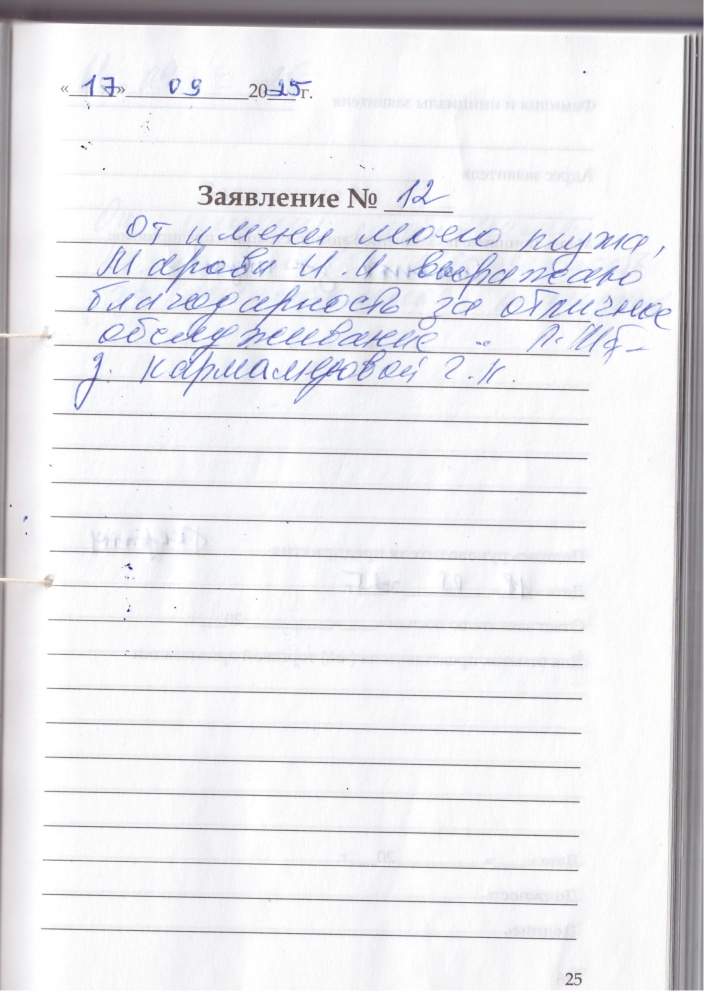 «17» 09 2025 г.
Заявление № 12
От имени моего мужа,
И. И выражаю
благодарность за отличное
обслуживание
Кармалюковой Г. К.
25